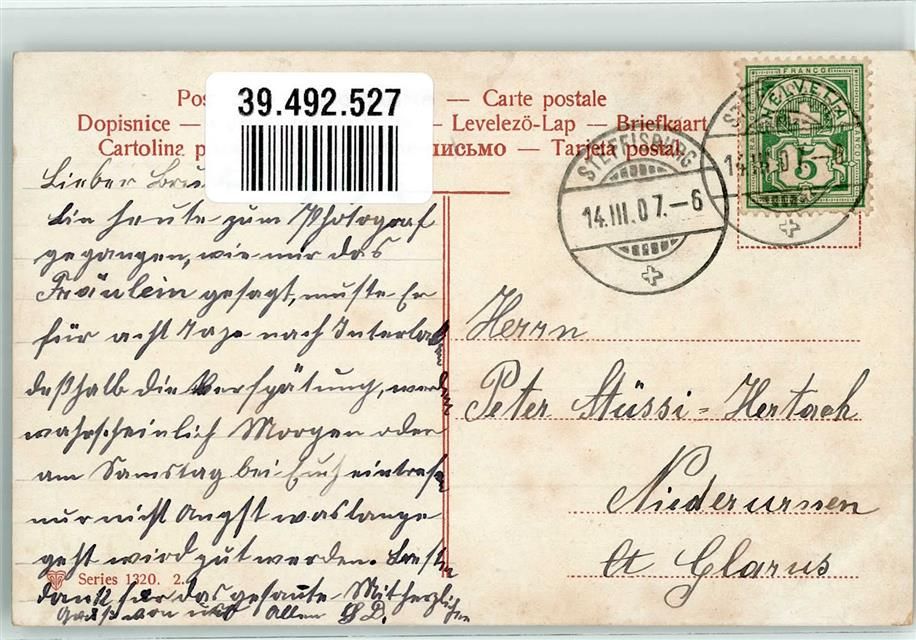 Pos
39.492.527
— Carte postale
Dopisnice —
— Levelező-Lap — Briefkaart
Cartolina p
письмо — Tarjeta postal
FRANCO
HELVETIA
5
STEFFISBURG
14.III.07.–6
14.III.07.–6
Lieber Bru
bin heute zum Photograf
gegangen, wie mir das
Fräulein gesagt, muste Er
für acht Tage nach Interlaken
deßhalb die Verspätung, werde
wahrscheinlich Morgen oder
am Samstag bei Euch eintrefen
nur nicht Angst was lange
geht wird gut werden. Besten
dank für das gesante Mit herzlichen
Gruß von uns Allen
Herrn
Peter Stüssi-Hertach
Niederurnen
Ct Glarus
Series 1320. 2.